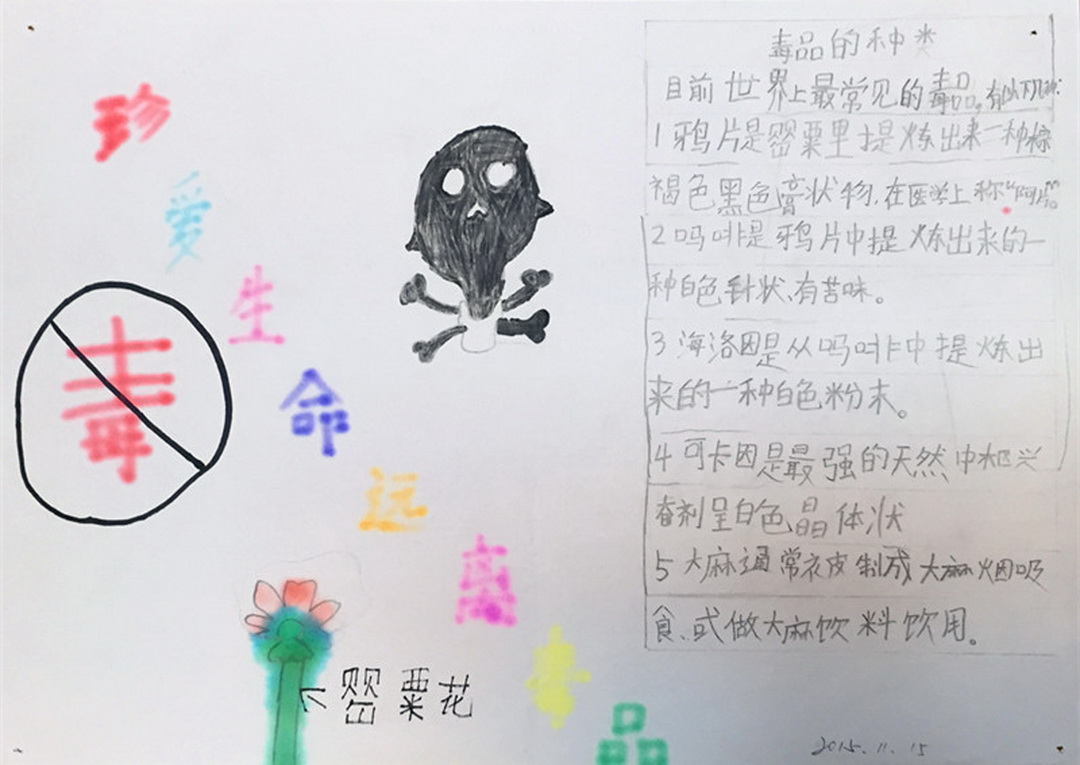 珍爱生命远离毒品
毒
罂粟花
毒品的种类
目前世界上最常见的毒品。有以下几种:
1 鸦片是罂粟里提炼出来一种棕
褐色黑色膏状物,在医学上称“阿片”。
2 吗啡是鸦片中提炼出来的一
种白色针状、有苦味。
3 海洛因是从吗啡中提炼出
来的一种白色粉末。
4 可卡因是最强的天然中枢兴
奋剂呈白色晶体状
5 大麻通常衣皮制成大麻烟吸
食、或做大麻饮料饮用。
2015.11.15